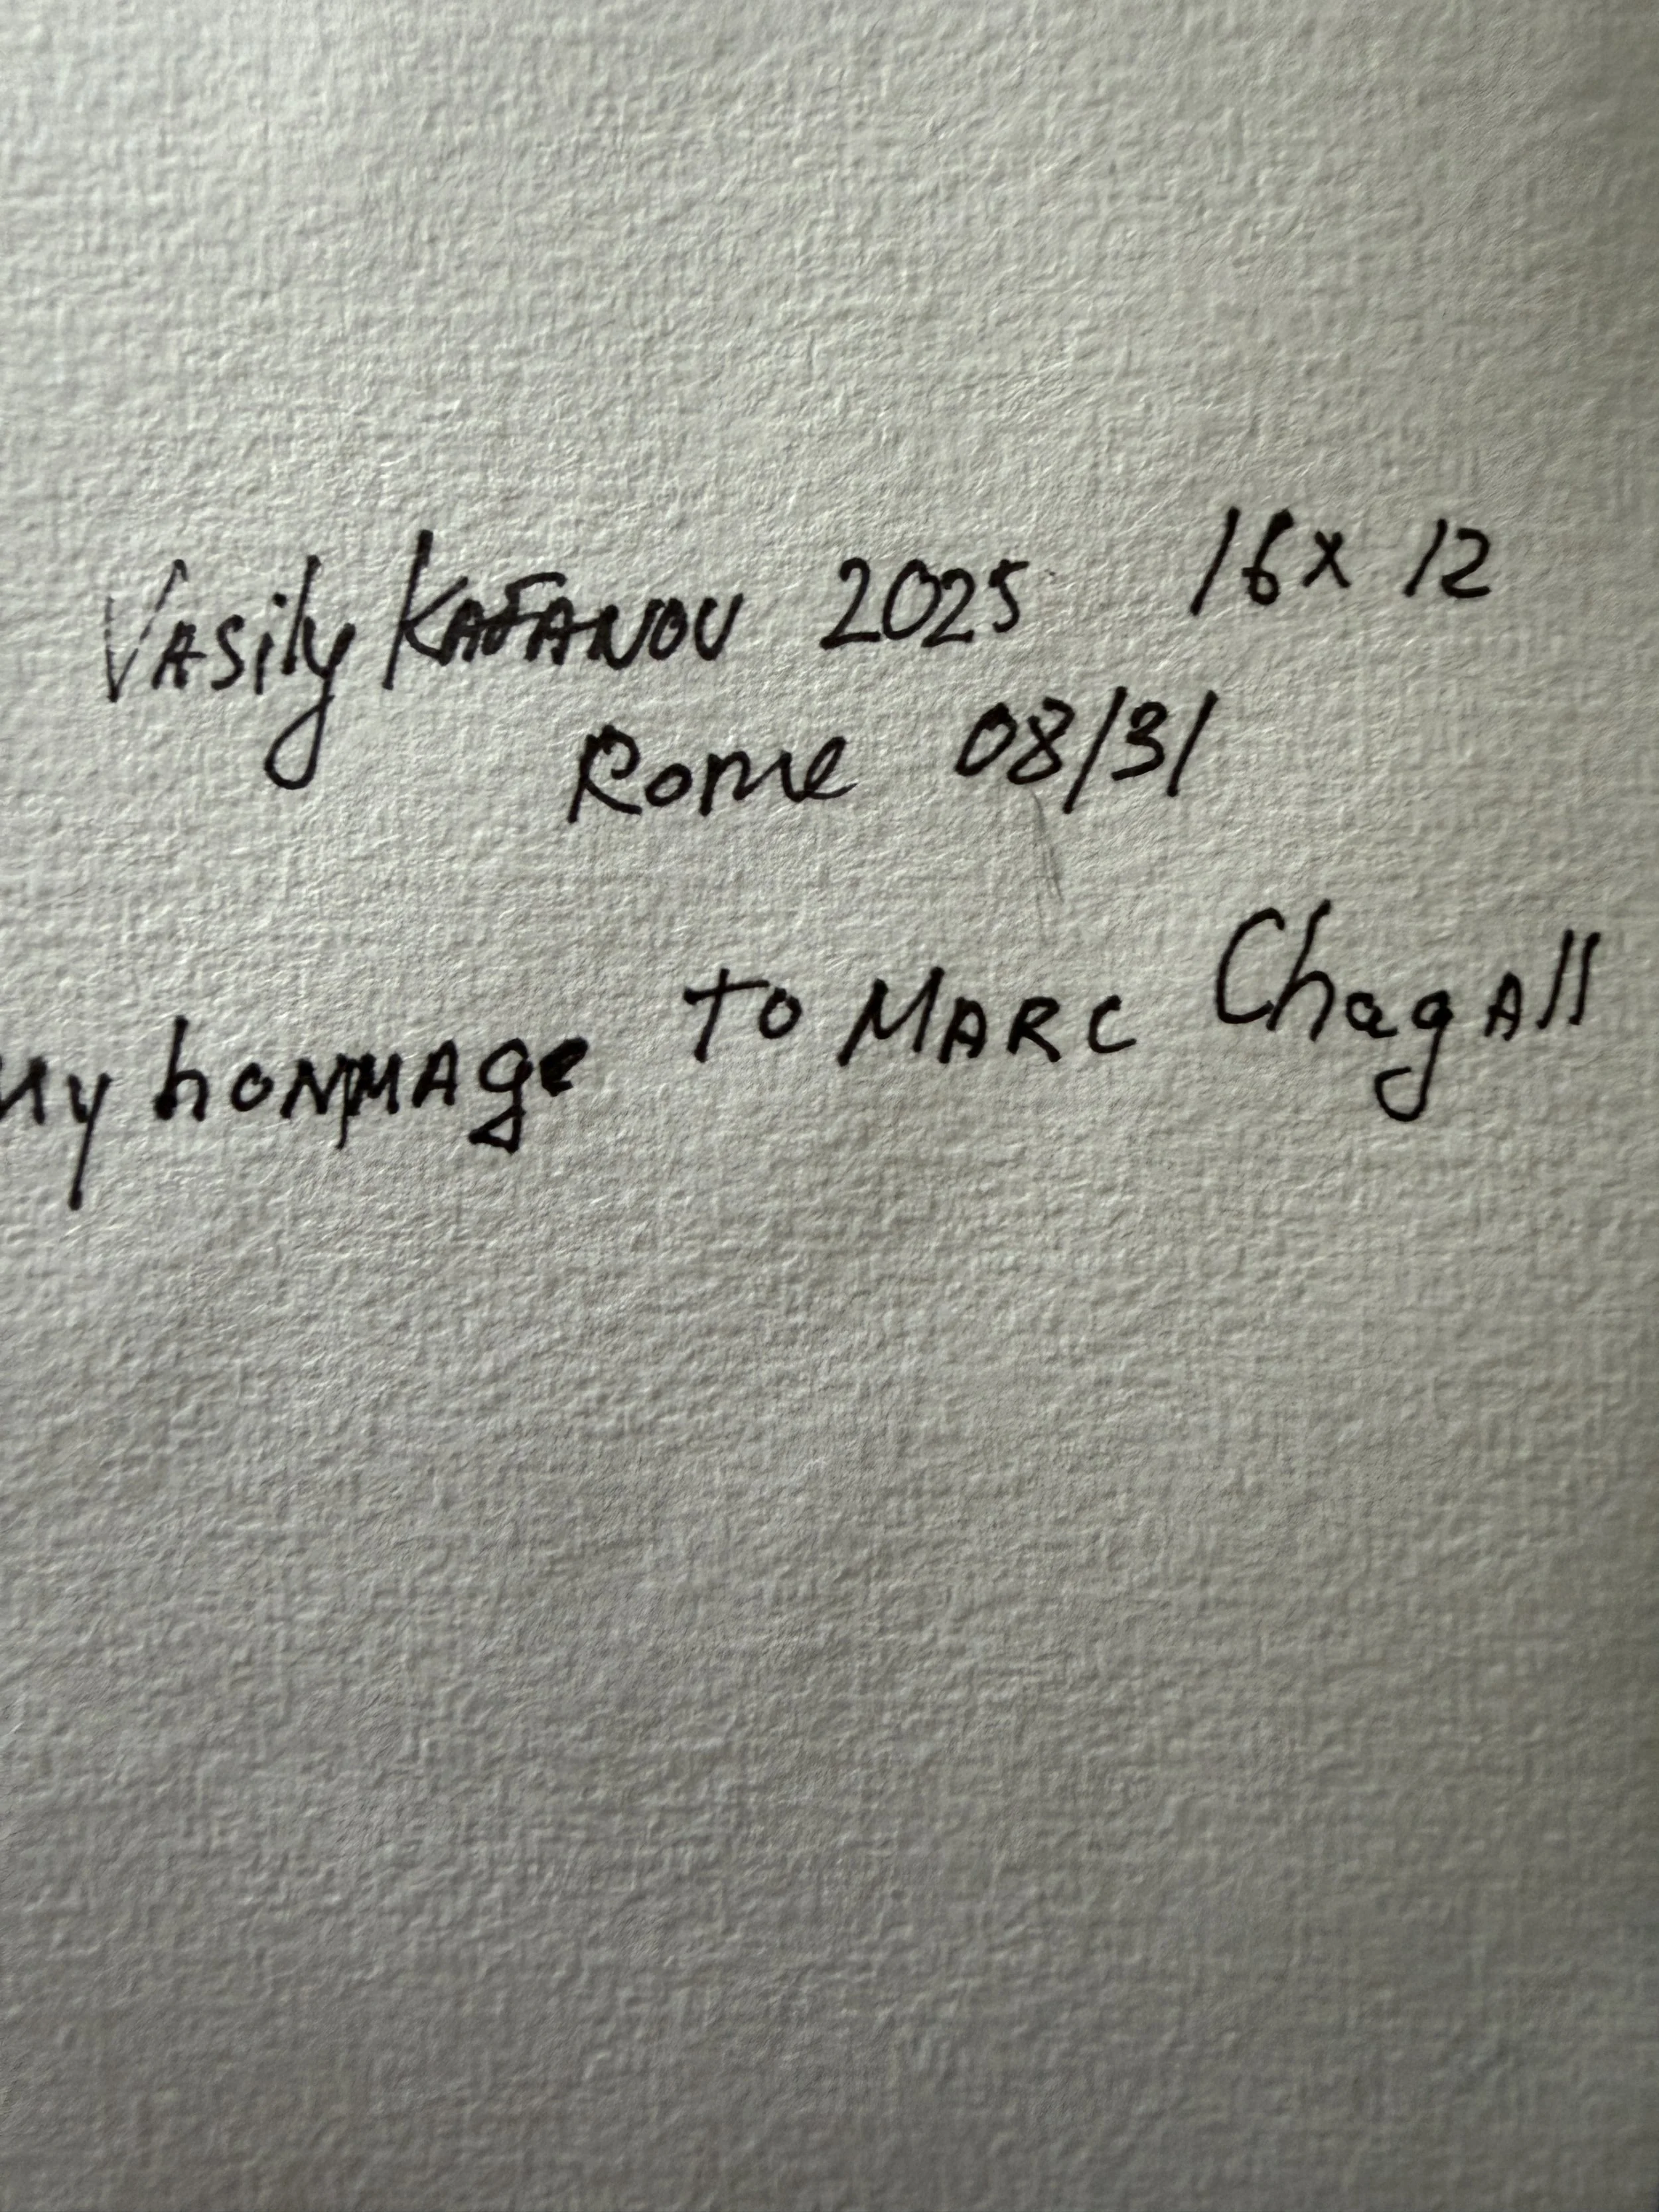 Vasily Kafanov 2025 16x12
Rome 08/31
My hommage to Marc Chagall